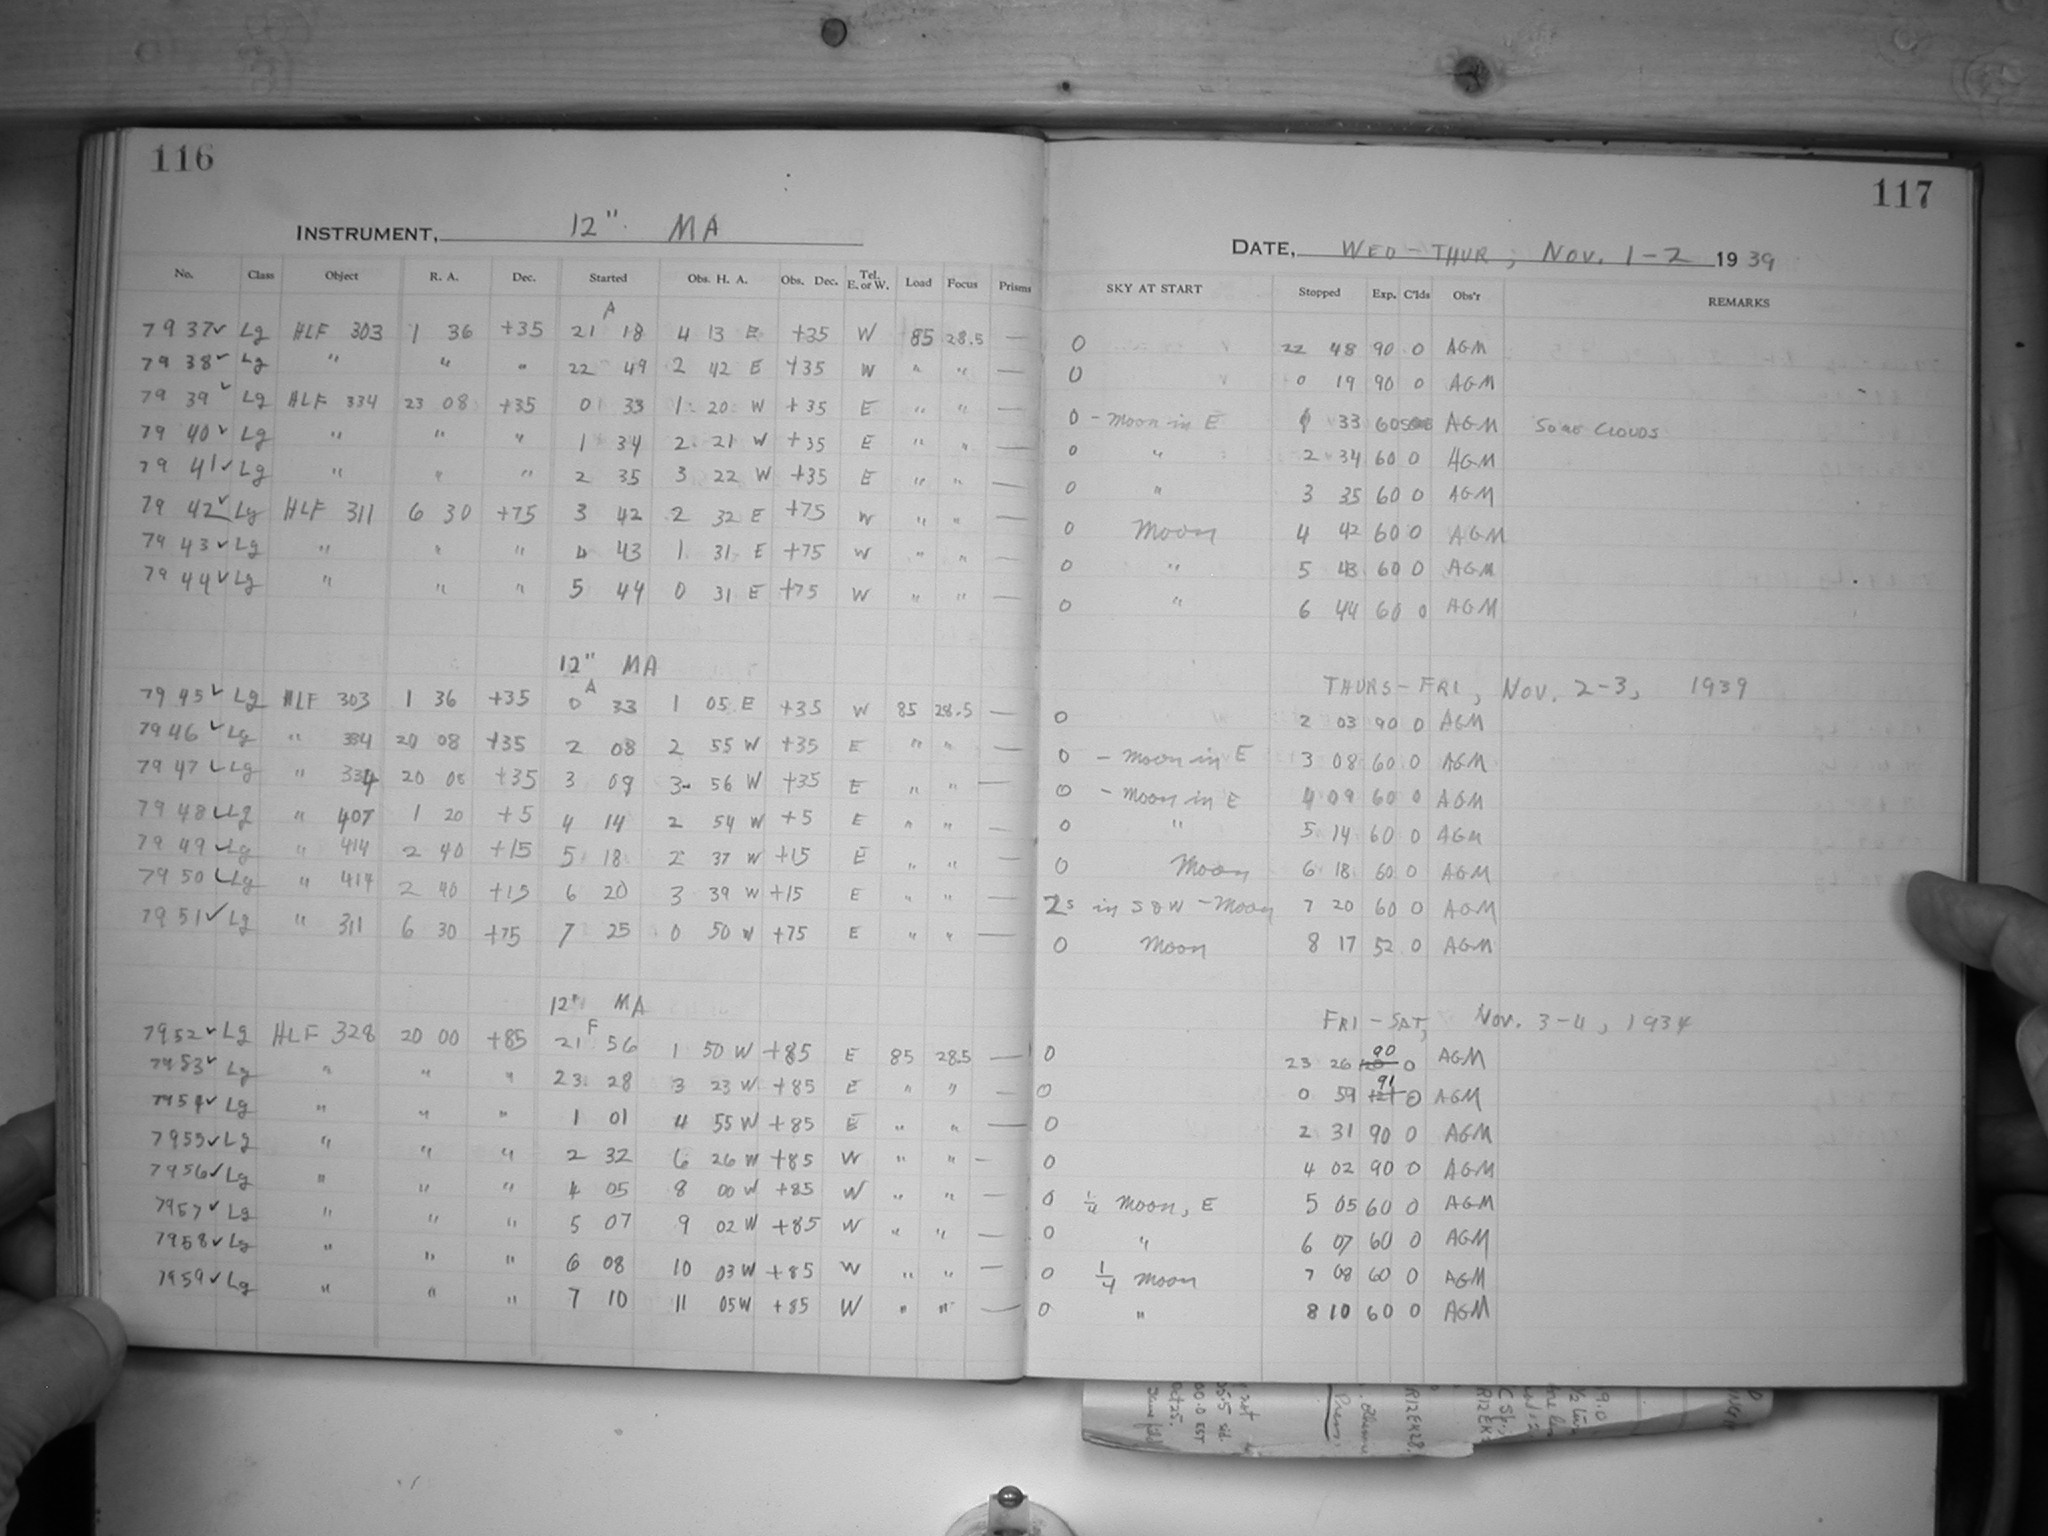 116
INSTRUMENT, 12" MA
No. Class Object R. A. Dec. Started Obs. H. A. Obs. Dec. Tel. E. or W. Load Focus Prisms
A
7937✓ Lg HLF 303 1 36 +35 21 18 4 13 E +35 W 85 28.5 —
7938✓ Lg " " " 22 49 2 42 E +35 W " " —
7939✓ Lg HLF 334 23 08 +35 0 33 1 20 W +35 E " " —
7940✓ Lg " " " 1 34 2 21 W +35 E " " —
7941✓ Lg " " " 2 35 3 22 W +35 E " " —
7942✓ Lg HLF 311 6 30 +75 3 42 2 32 E +75 W " " —
7943✓ Lg " " " 4 43 1 31 E +75 W " " —
7944✓ Lg " " " 5 44 0 31 E +75 W " " —
12" MA
A
7945✓ Lg HLF 303 1 36 +35 0 33 1 05 E +35 W 85 28.5 —
7946✓ Lg " 334 20 08 +35 2 08 2 55 W +35 E " " —
7947✓ Lg " 334 20 08 +35 3 09 3 56 W +35 E " " —
7948✓ Lg " 407 1 20 +5 4 14 2 54 W +5 E " " —
7949✓ Lg " 414 2 40 +15 5 18 2 37 W +15 E " " —
7950✓ Lg " 414 2 40 +15 6 20 3 39 W +15 E " " —
7951✓ Lg " 311 6 30 +75 7 25 0 50 W +75 E " " —
12" MA
F
7952✓ Lg HLF 328 20 00 +85 21 56 1 50 W +85 E 85 28.5 —
7953✓ Lg " " " 23 28 3 23 W +85 E " " —
7954✓ Lg " " " 1 01 4 55 W +85 E " " —
7955✓ Lg " " " 2 32 6 26 W +85 W " " —
7956✓ Lg " " " 4 05 8 00 W +85 W " " —
7957✓ Lg " " " 5 07 9 02 W +85 W " " —
7958✓ Lg " " " 6 08 10 03 W +85 W " " —
7959✓ Lg " " " 7 10 11 05 W +85 W " " —
117
DATE, WED-THUR, Nov. 1-2 1939
SKY AT START Stopped Exp. C'lds Obs'r REMARKS
0 22 48 90 0 AGM
0 0 19 90 0 AGM
0 - Moon in E 1 33 60 AGM SOME CLOUDS
0 " 2 34 60 0 AGM
0 " 3 35 60 0 AGM
0 Moon 4 42 60 0 AGM
0 " 5 43 60 0 AGM
0 " 6 44 60 0 AGM
THURS-FRI, Nov. 2-3, 1939
0 2 03 90 0 AGM
0 - Moon in E 3 08 60 0 AGM
0 - Moon in E 4 09 60 0 AGM
0 " 5 14 60 0 AGM
0 Moon 6 18 60 0 AGM
2s in S & W - Moon 7 20 60 0 AGM
0 Moon 8 17 52 0 AGM
FRI-SAT, Nov. 3-4, 1934
0 23 26 90 0 AGM
0 0 59 91 0 AGM
0 2 31 90 0 AGM
0 4 02 90 0 AGM
0 1/4 Moon, E 5 05 60 0 AGM
0 " 6 07 60 0 AGM
0 1/4 Moon 7 08 60 0 AGM
0 " 8 10 60 0 AGM